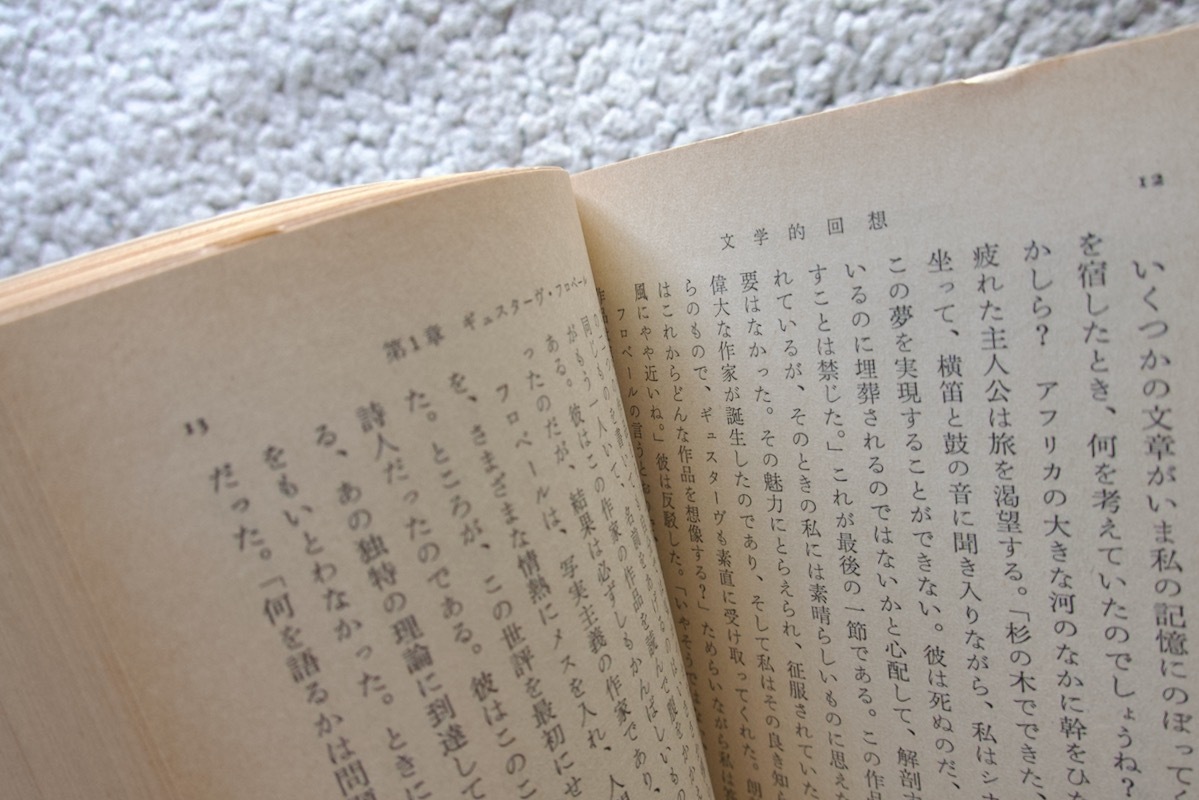 12
文学的回想
いくつかの文章がいま私の記憶にのぼって
を宿したとき、何を考えていたのでしょうね?
かしら? アフリカの大きな河のなかに幹をひた
疲れた主人公は旅を渇望する。「杉の木でできた、
坐って、横笛と鼓の音に聞き入りながら、私はシナ
この夢を実現することができない。彼は死ぬのだ、
いるのに埋葬されるのではないかと心配して、解剖す
すことは禁じた。」これが最後の一節である。この作品
れているが、そのときの私には素晴らしいものに思えた
要はなかった。その魅力にとらえられ、征服されていた
偉大な作家が誕生したのであり、そして私はその良き知ら
らのもので、ギュスターヴも素直に受け取ってくれた。朗
はこれからどんな作品を想像する?」ためらいながら私は答
風にやや近いね。」彼は反駁した。「いやそうで
フロベールの言うと
第1章 ギュスターヴ・フロベール
13
同じもう一人いて、名前をあげ
がもう一人の作家の作品を読んで
ある。彼はこの作家の作品を
ったのだが、結果は必ずしもかんばしいもの
フロベールは、写実主義の作家であり、
を、さまざまな情熱にメスを入れ、人
た。ところが、この世評を最初にせ
詩人だったのである。彼はこのこ
る、あの独特の理論に到達して
をもいとわなかった。ときに
だった。「何を語るかは問題